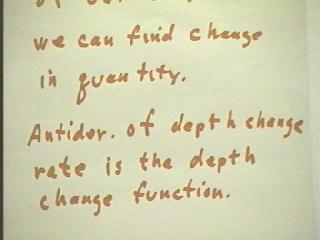 we can find change
in quantity.
Antider. of depth change
rate is the depth
change function.